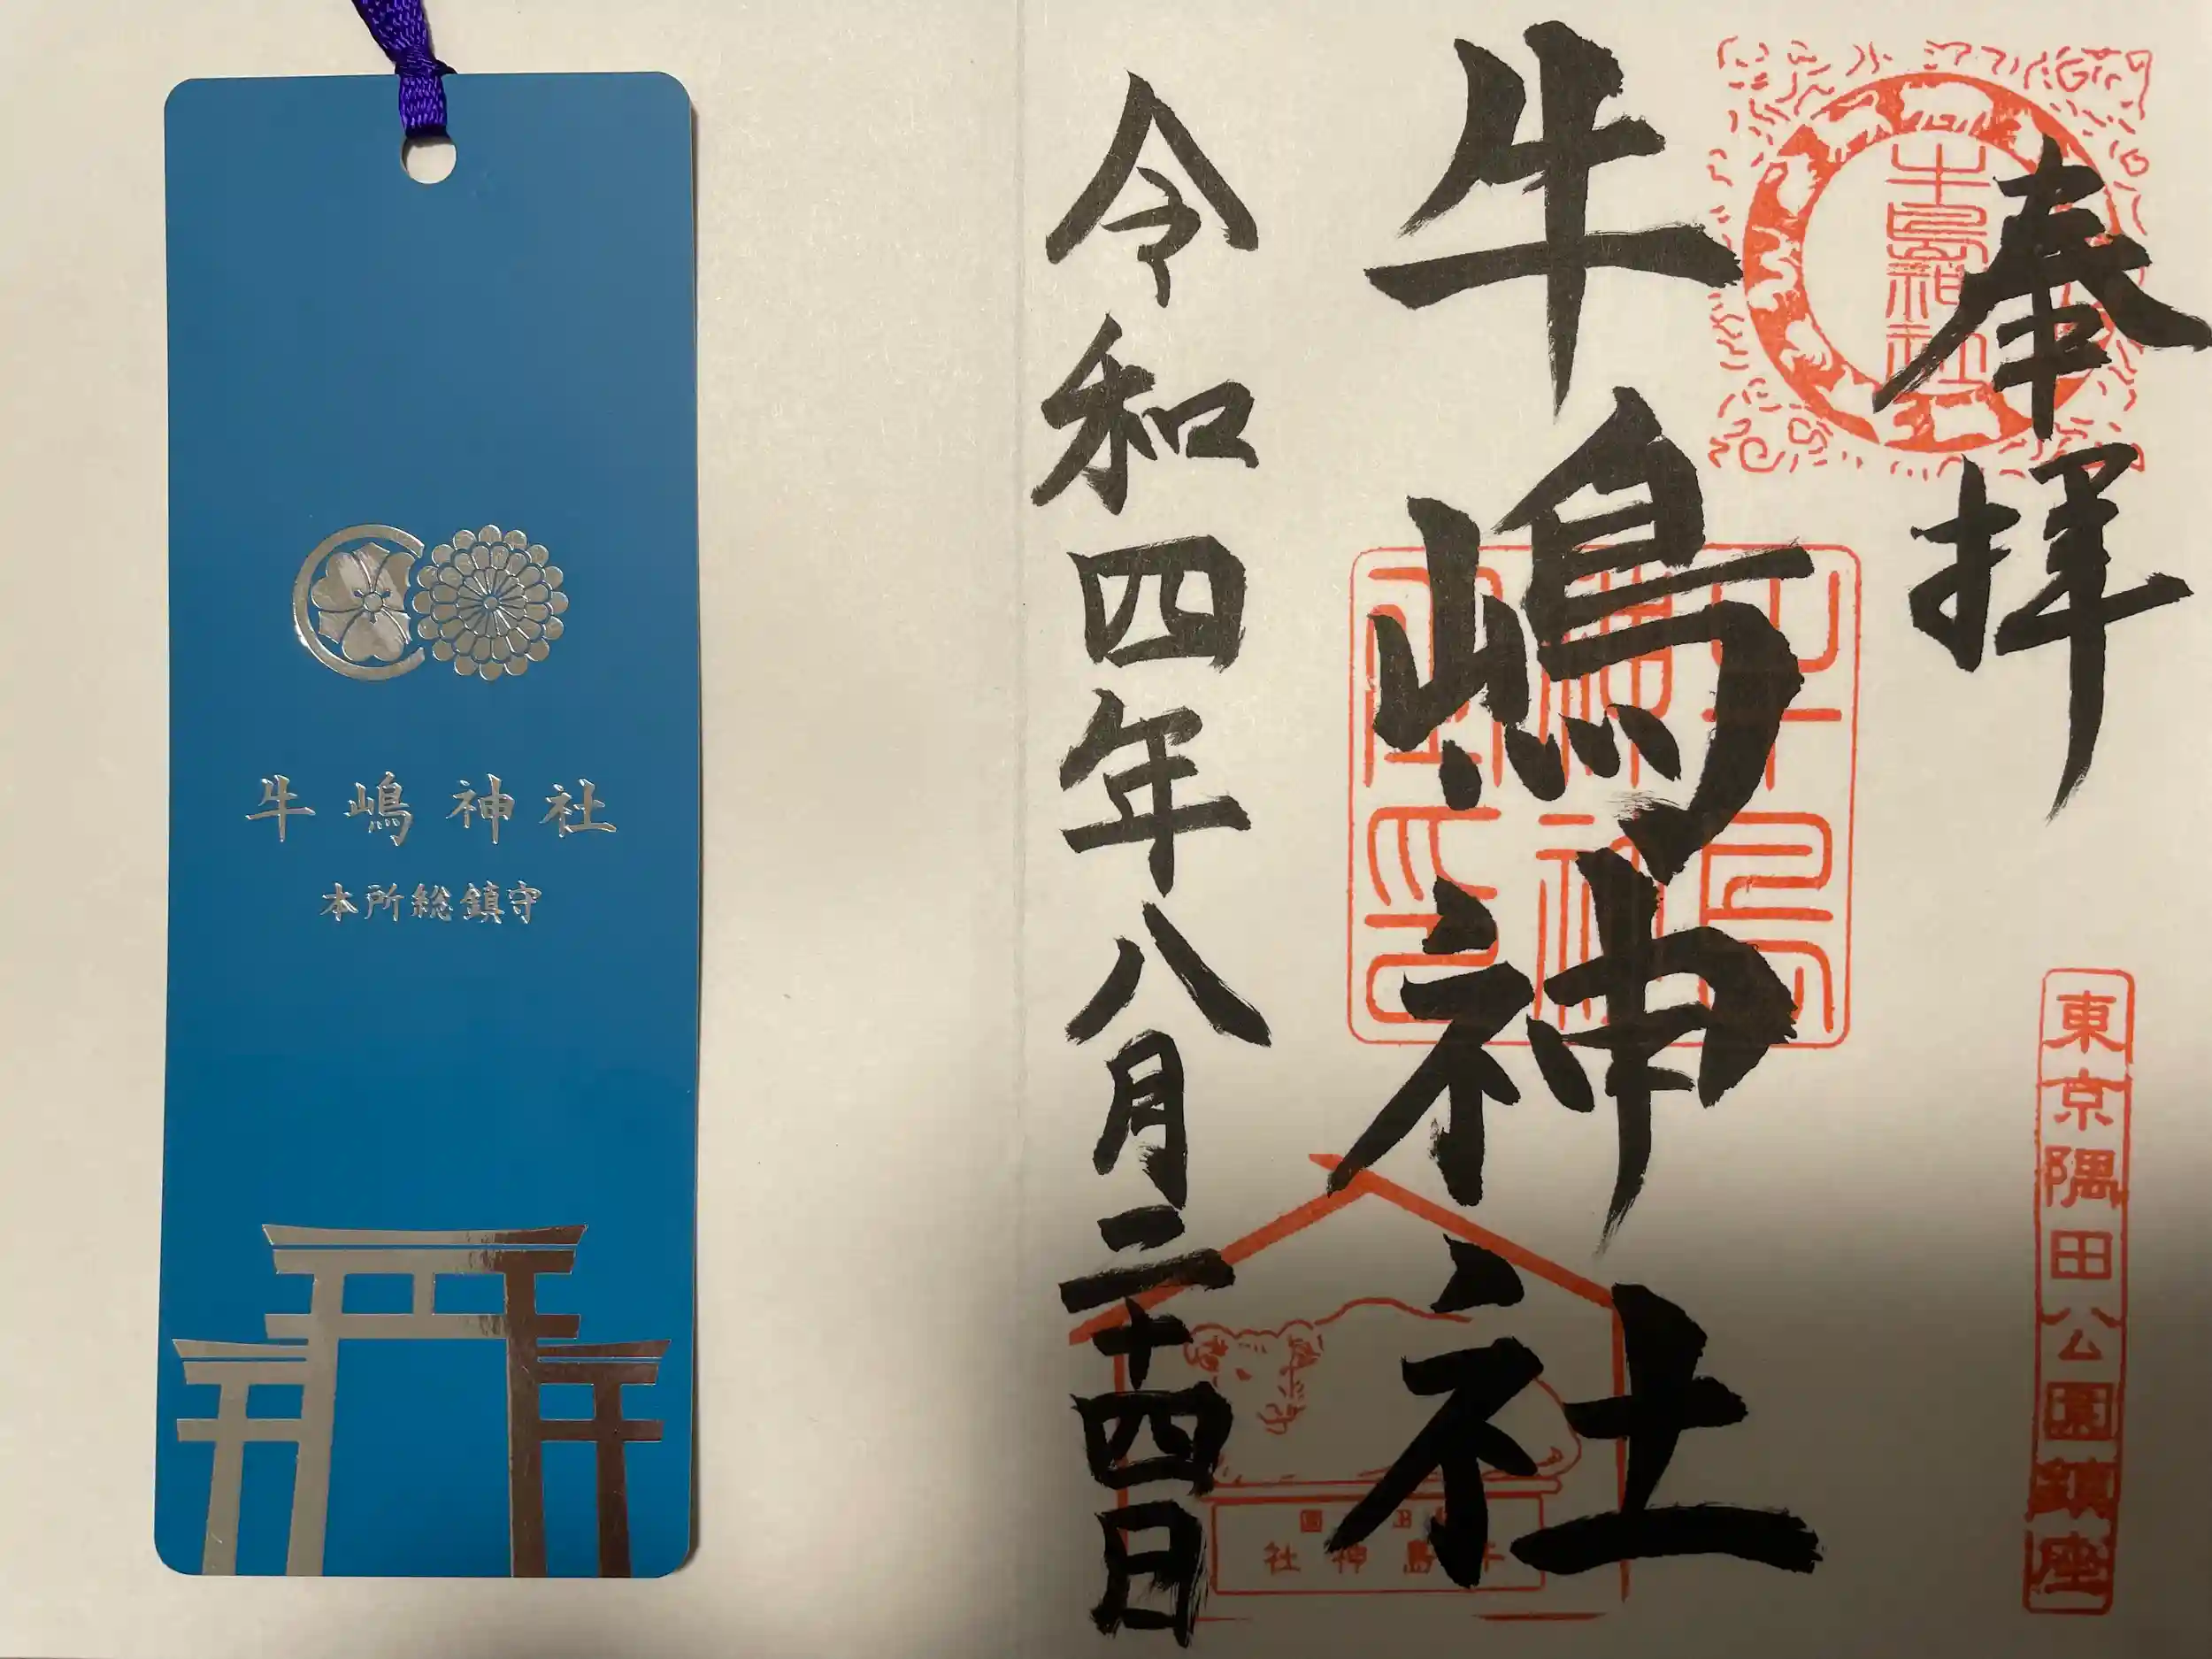 牛嶋神社
本所総鎮守
奉拝
牛嶋神社
令和四年八月二十四日
東京隅田公園鎮座
牛島神社